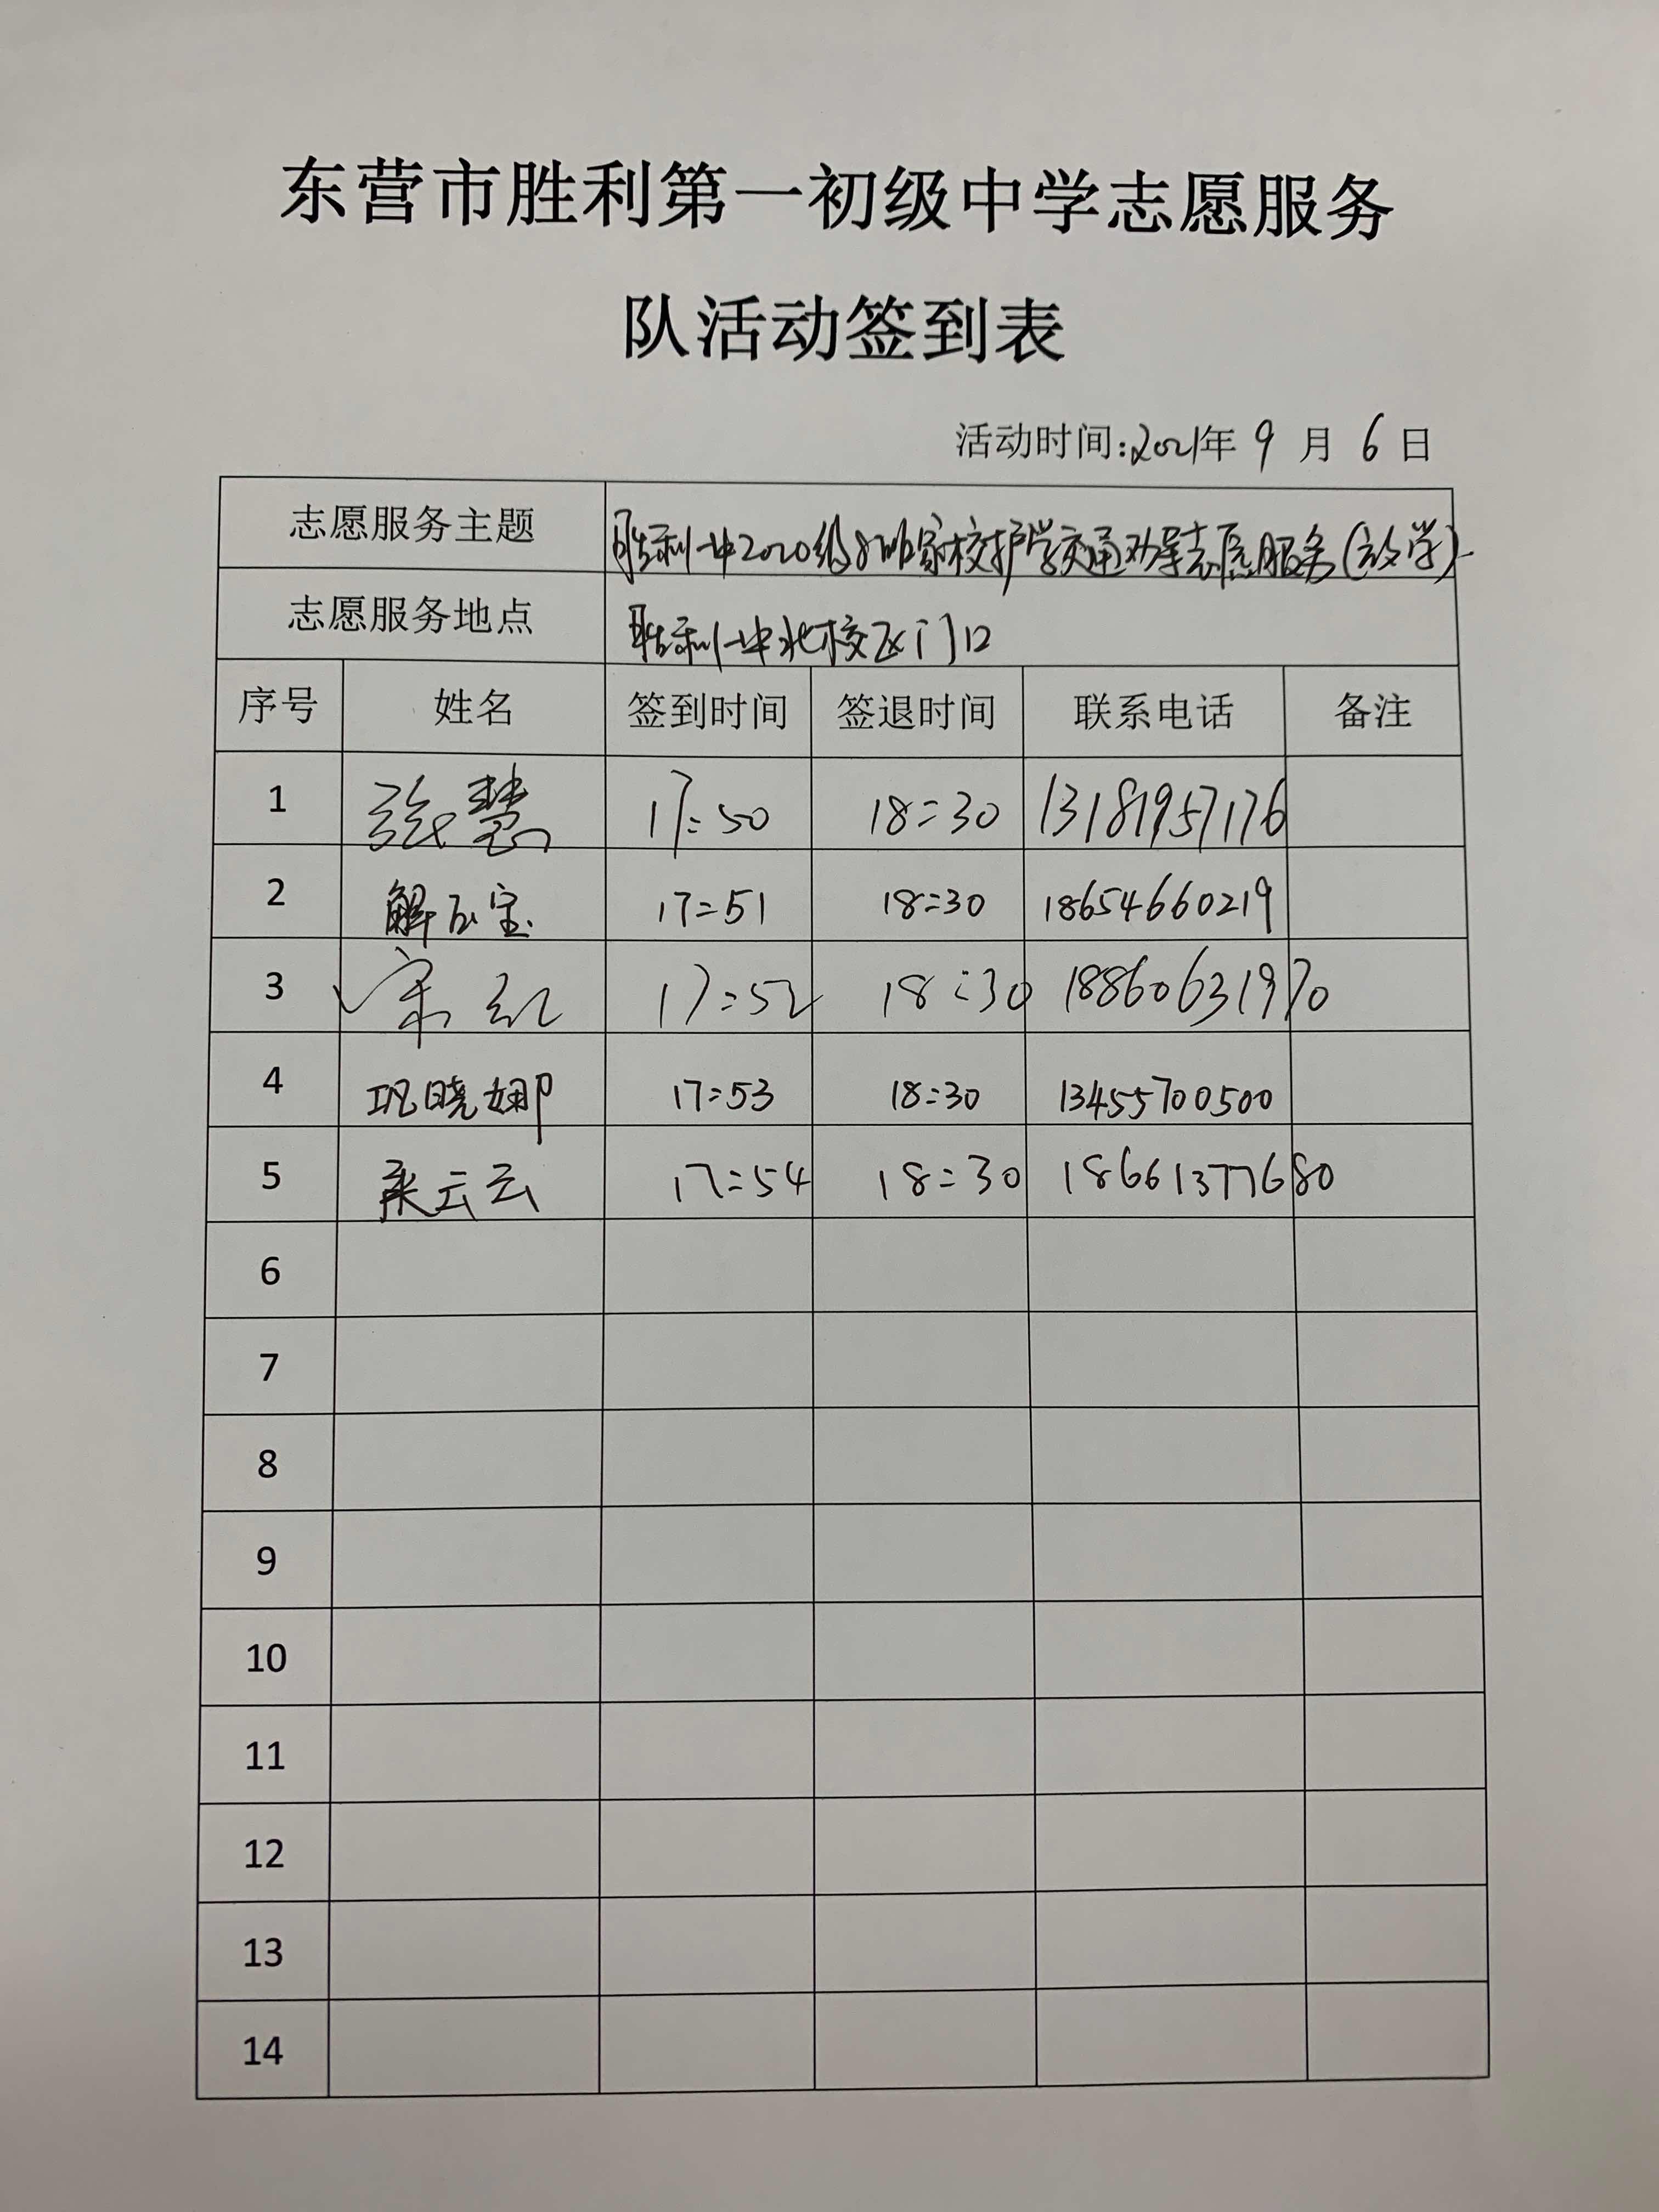 东营市胜利第一初级中学志愿服务
队活动签到表
活动时间:2021年 9 月 6 日
志愿服务主题 胜利一中2020级8班家校护学交通劝导志愿服务(放学)
志愿服务地点 胜利一中北校区门口
序号 姓名 签到时间 签退时间 联系电话 备注
1 张慧 17:50 18:30 13181957176
2 解玉宝 17:51 18:30 18654660219
3 宋红 17:52 18:30 18860631970
4 巩晓娜 17:53 18:30 13455700500
5 云云 17:54 18:30 18661377680
6
7
8
9
10
11
12
13
14